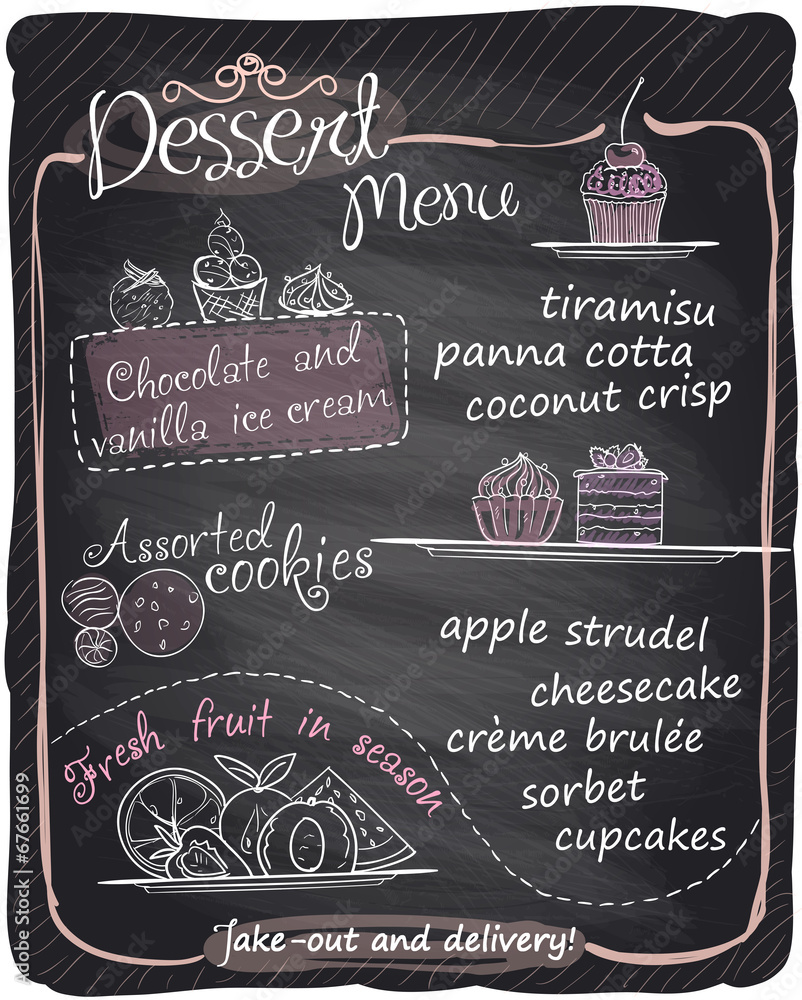 Dessert
Menu
Chocolate and
vanilla ice cream
tiramisu
panna cotta
coconut crisp
Assorted
cookies
apple strudel
cheesecake
crème brulée
sorbet
cupcakes
Fresh fruit in season
Take-out and delivery!
Adobe Stock | #67661699